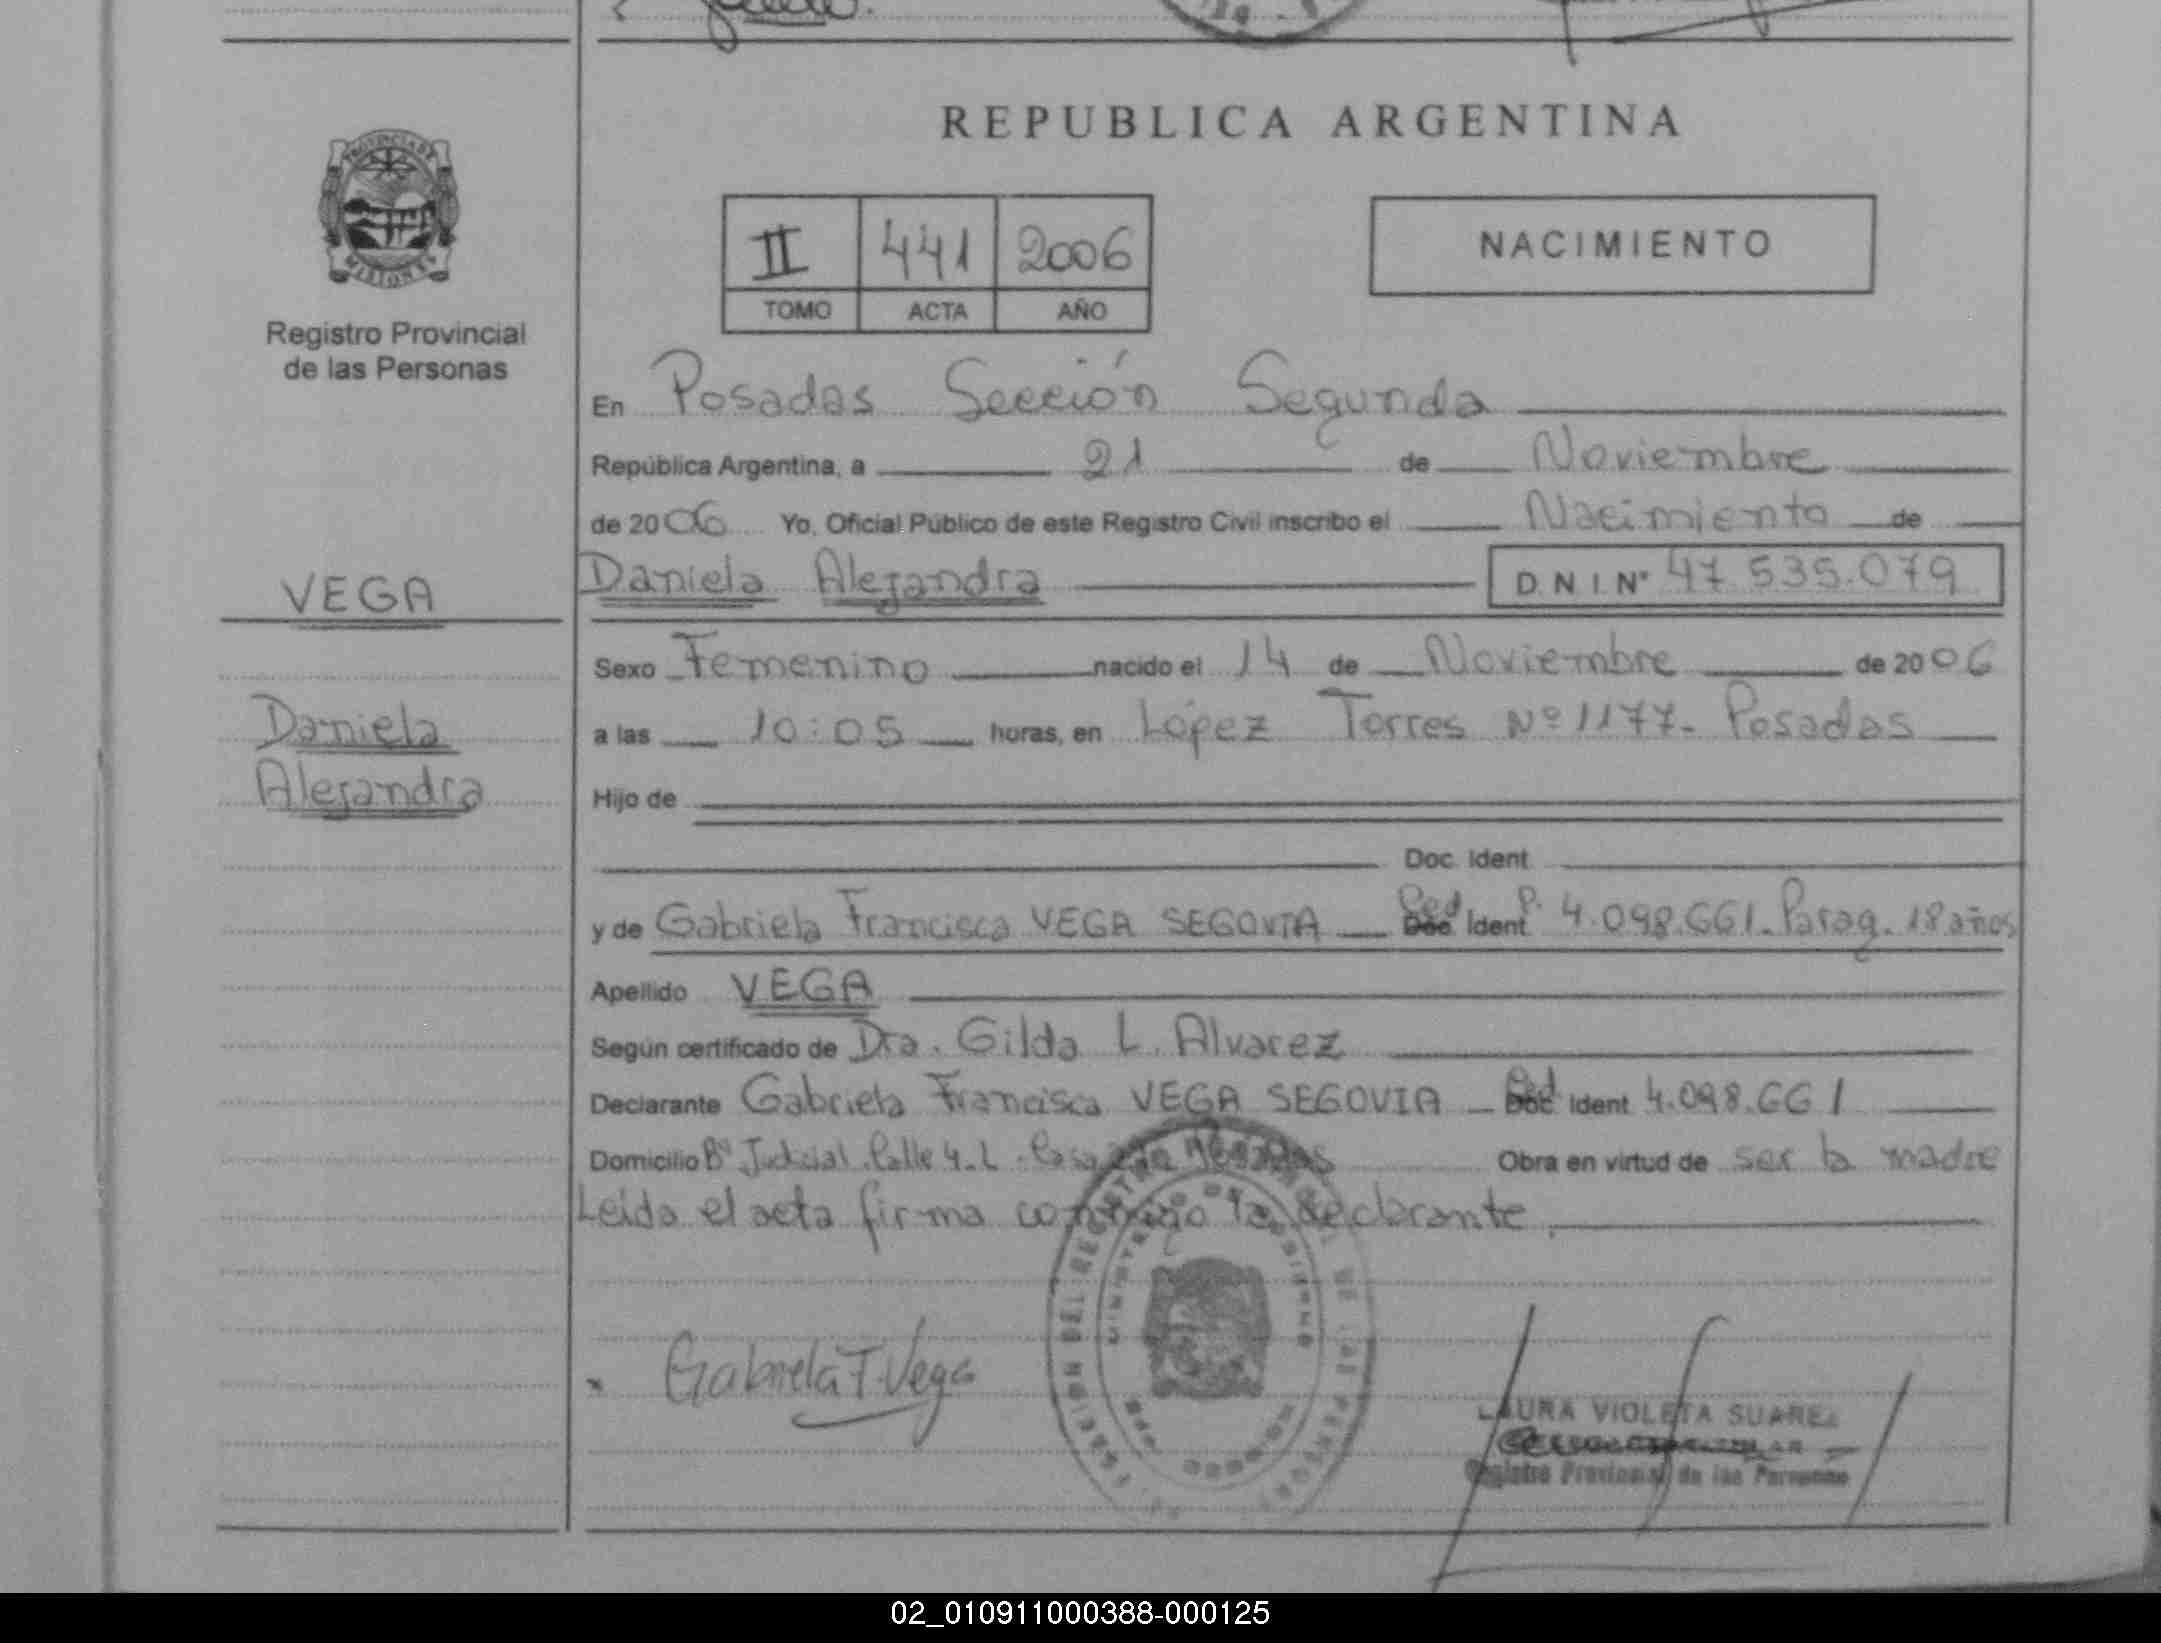 REPUBLICA ARGENTINA
PROVINCIA DE
MISIONES
Registro Provincial
de las Personas
II 441 2006
TOMO ACTA AÑO
NACIMIENTO
En Posadas Sección Segunda
República Argentina, a 21 de Noviembre
de 2006 Yo, Oficial Público de este Registro Civil inscribo el Nacimiento de
VEGA
Daniela Alejandra D N I Nº 47.535.079
Sexo Femenino nacido el 14 de Noviembre de 2006
Daniela
Alejandra
a las 10:05 horas, en López Torres Nº 1177- Posadas
Hijo de
Doc. Ident.
y de Gabriela Francisca VEGA SEGOVIA Ced P. Doc Ident. 4.098.661-Parag. 18 años
Apellido VEGA
Según certificado de Dra. Gilda L. Alvarez
Declarante Gabriela Francisca VEGA SEGOVIA Ced Doc Ident 4.098.661
Domicilio Bº Judicial Calle 4-L Obra en virtud de ser la madre
Leída el acta firma conmigo la declarante.
x Gabriela F. Vega
MINISTERIO DE GOBIERNO
LAURA VIOLETA SUAREZ
Registro Provincial de las Personas
02_010911000388-000125